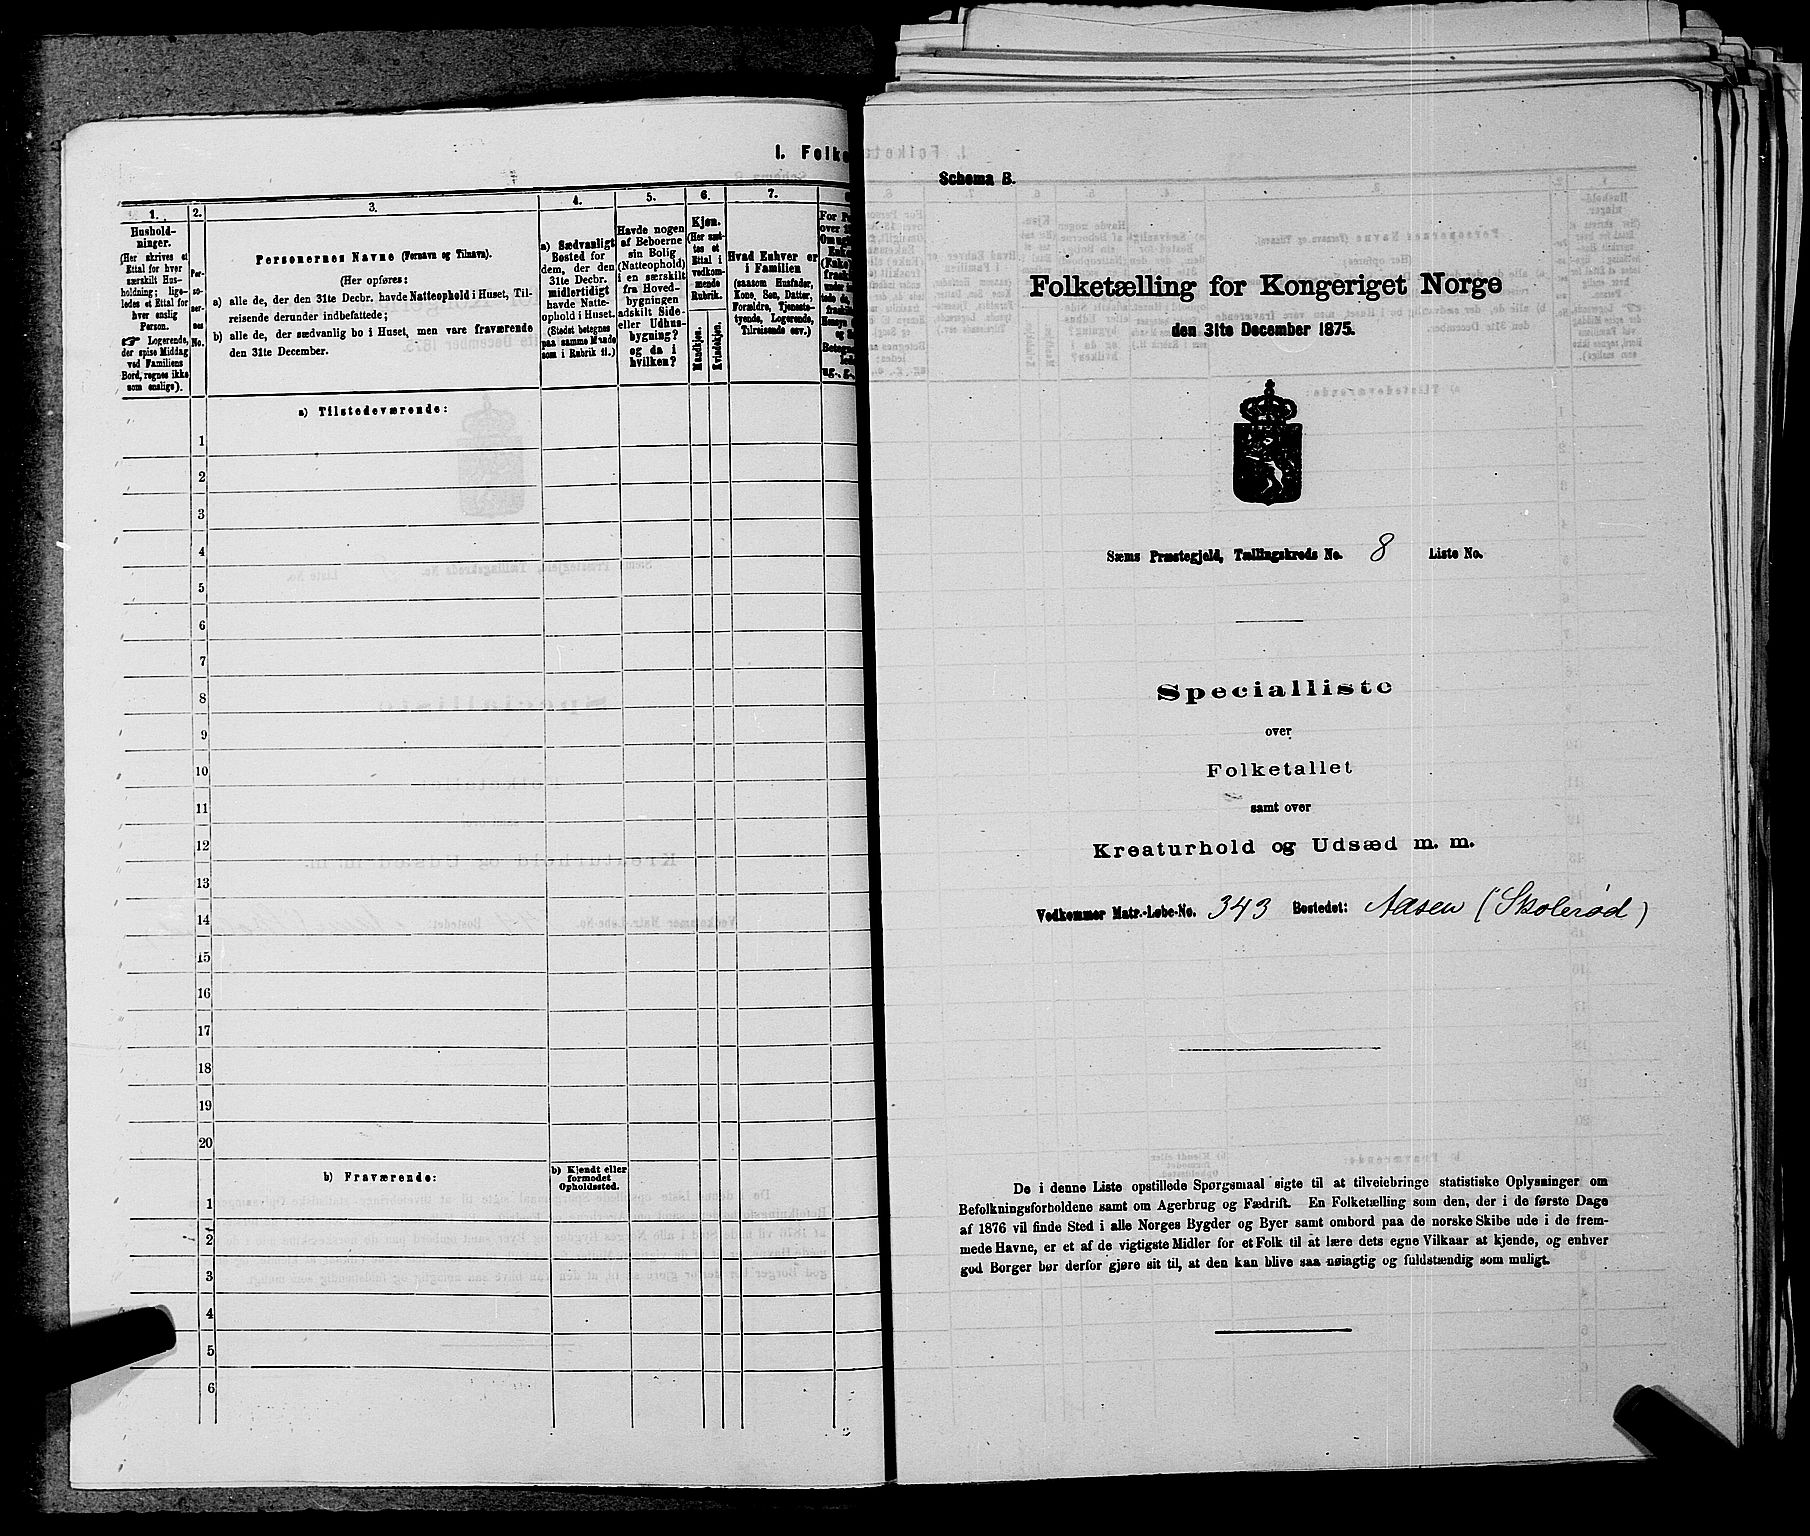 I. Folke
1.
Hushold-
ninger.
(Her skrives et
Ettal for hver
særskilt Hus-
holdning; lige-
ledes et Ettal for
hver enslig
Person.
☞ Logerende,
der spise Middag
ved Familiens
Bord, regnes ikke
som enslige).
2.
Per-
so-
ner-
nes
No.
3.
Personernes Navne (Fornavn og Tilnavn).
(Her opføres:
a) alle de, der den 31te Decbr. havde Natteophold i Huset, Til-
reisende derunder indbefattede;
b) alle de, der sædvanlig bo i Huset, men vare fraværende
den 31te December.
4.
a) Sædvanligt
Bosted for
dem, der den
31te Decbr.
midlertidigt
havde Natte-
ophold i Huset.
(Stedet betegnes
paa samme Maade
som i Rubrik 11.)
5.
Havde nogen
af Beboerne
sin Bolig
(Natteophold)
i en særskilt
fra Hoved-
bygningen
adskilt Side-
eller Udhus-
bygning?
og da i
hvilken?
6.
Kjøn.
(Her sæt-
tes et
Ettal i
vedkom-
mende
Rubrik.
Mandkjøn.
Kvindekjøn.
7.
Hvad Enhver er
i Familien
(saasom Husfader,
Kone, Søn, Datter,
Forældre, Tjeneste-
tyende, Logerende,
Tilreisende osv.)
a) Tilstedeværende:
1
2
3
4
5
6
7
8
9
10
11
12
13
14
15
16
17
18
19
20
b) Fraværende:
b) Kjendt eller
formodet
Opholdssted.
1
2
3
4
5
6
Schema B.
Folketælling for Kongeriget Norge
den 31te December 1875.
Sæms Præstegjeld, Tællingskreds No. 8 Liste No.
Specialliste
over
Folketallet
samt over
Kreaturhold og Udsæd m. m.
Vedkommer Matr.-Løbe-No. 343 Bostedet: Aasen (Skolerød)
De i denne Liste opstillede Spørgsmaal sigte til at tilveiebringe statistiske Oplysninger om
Befolkningsforholdene samt om Agerbrug og Fædrift. En Folketælling som den, der i de første Dage
af 1876 vil finde Sted i alle Norges Bygder og Byer samt ombord paa de norske Skibe ude i de frem-
mede Havne, er et af de vigtigste Midler for et Folk til at lære dets egne Vilkaar at kjende, og enhver
god Borger bør derfor gjøre sit til, at den kan blive saa nøiagtig og fuldstændig som muligt.